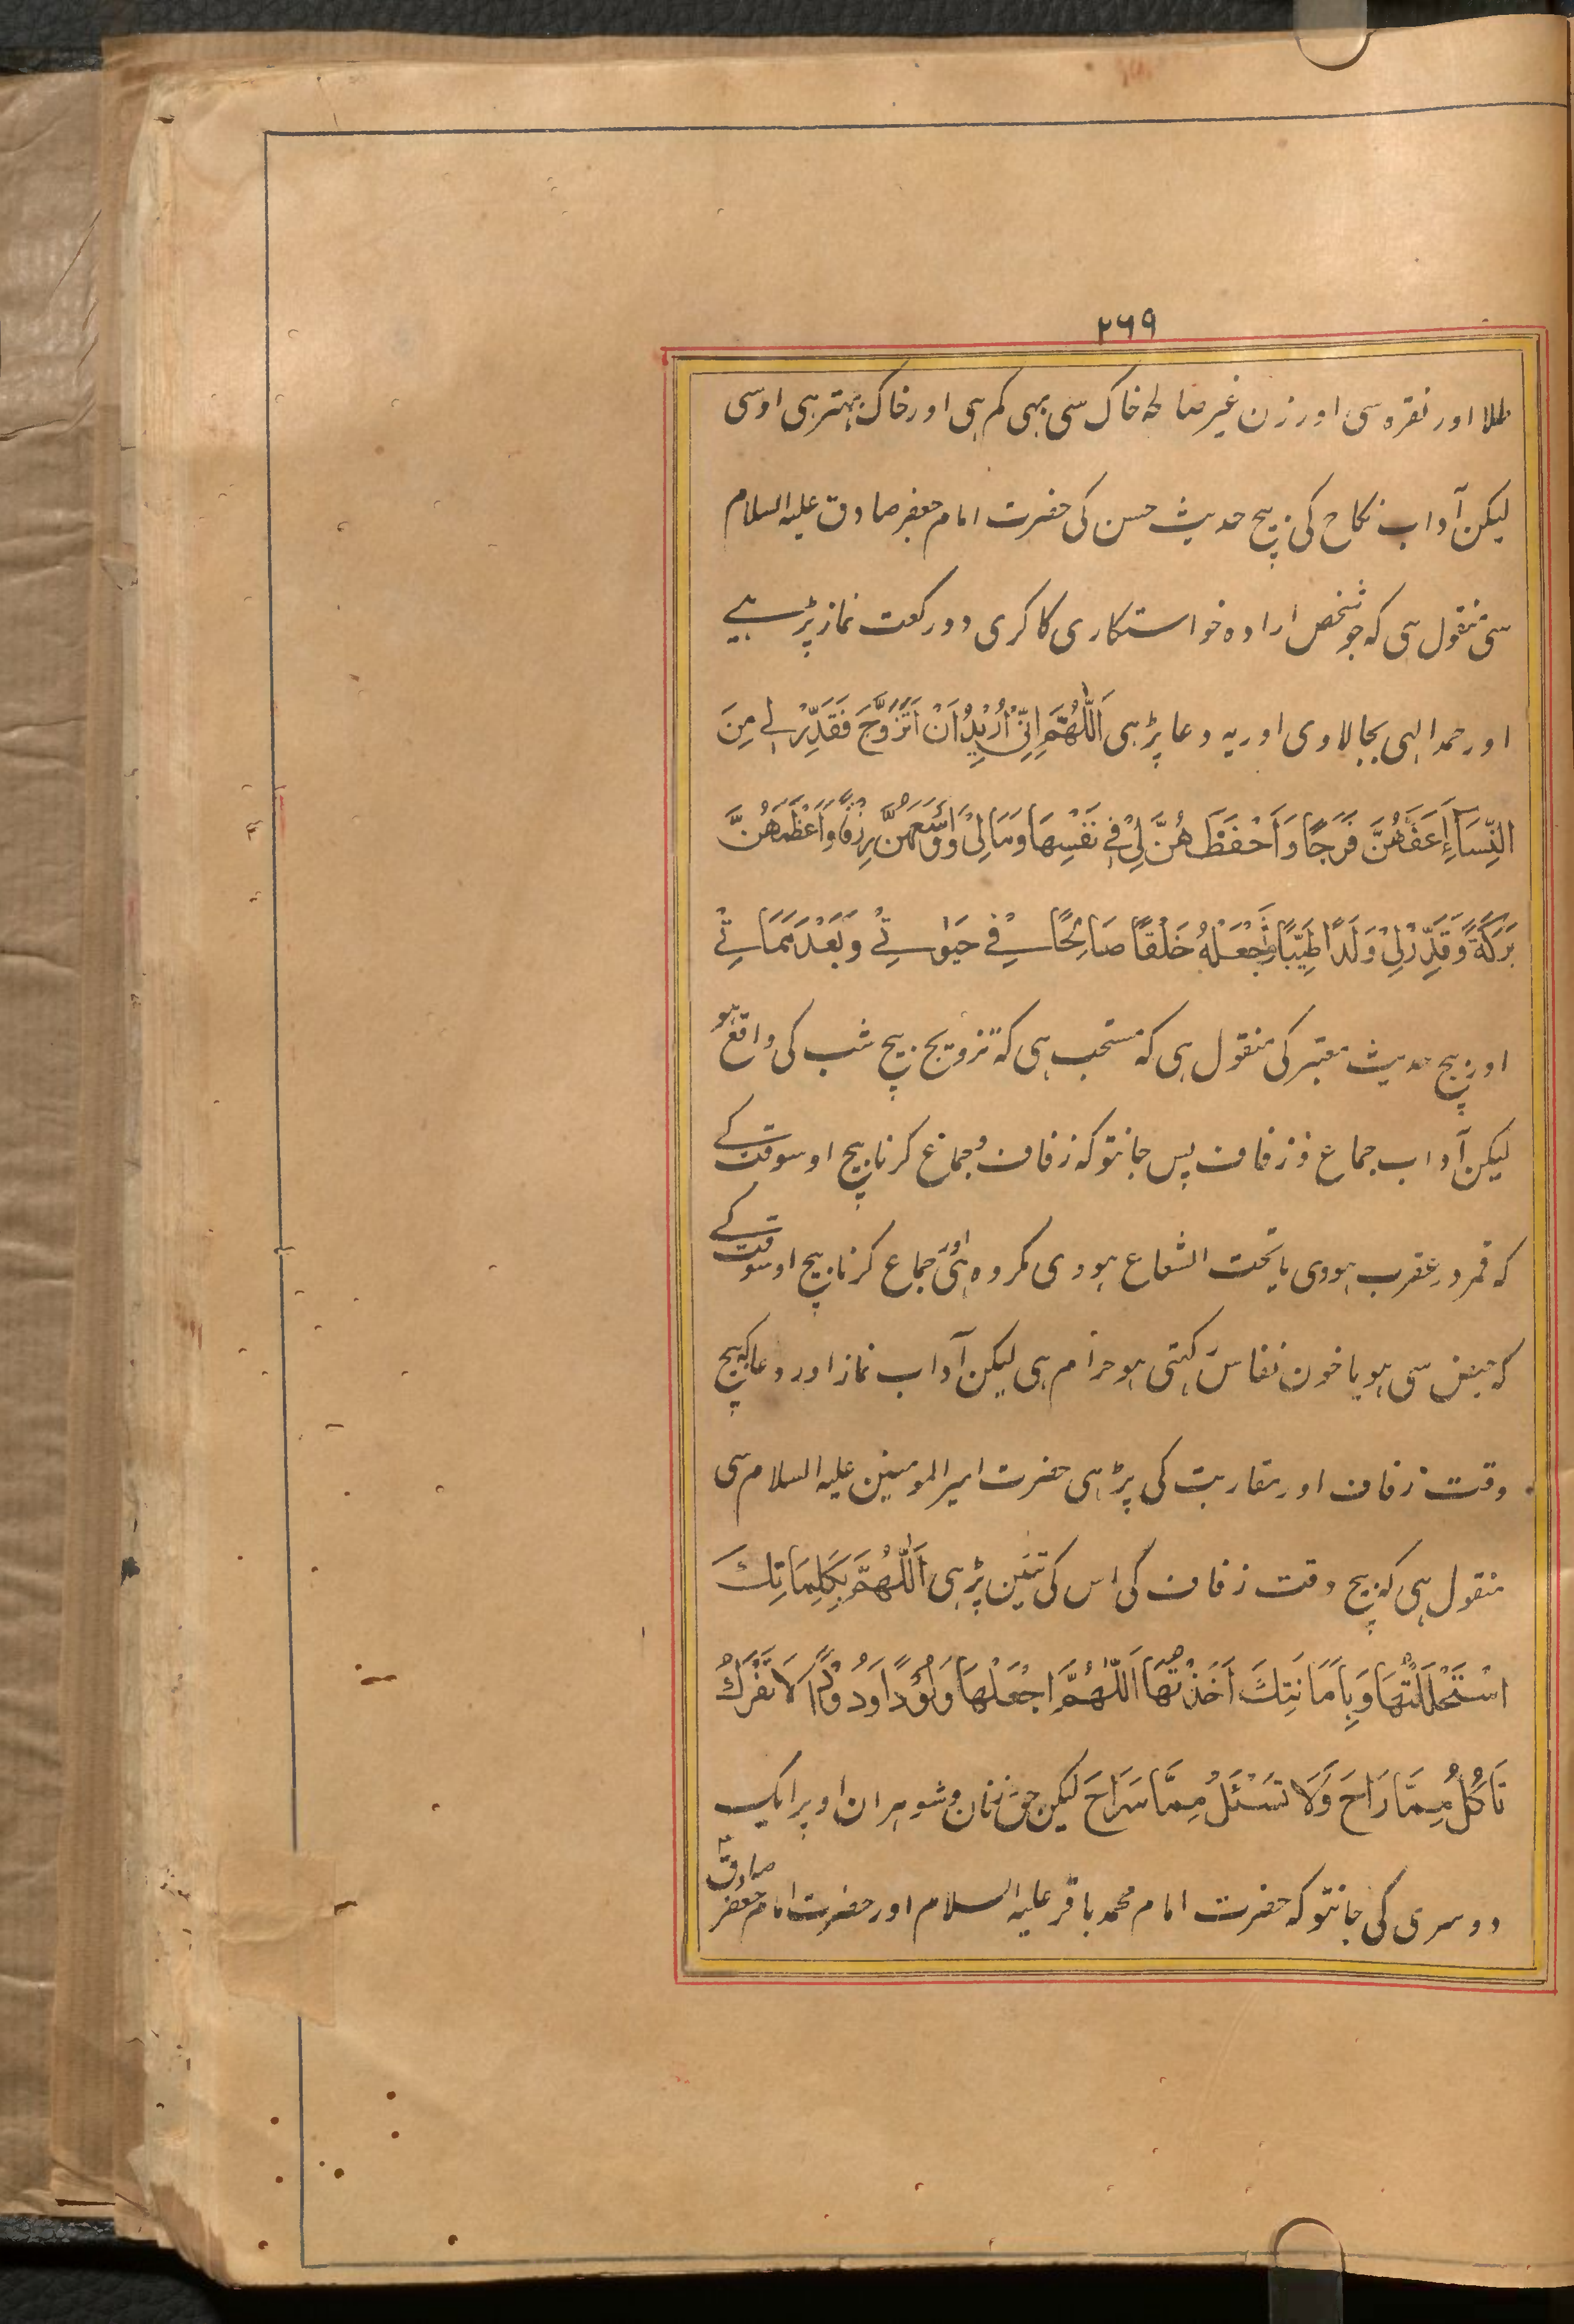 ۲۶۹
طلا اور نقرہ سی اور زن غیر صالحہ خاک سی بہی کم ہی اور خاک بہتر ہی اوسی
لیکن آداب نکاح کی بیچ حدیث حسن کی حضرت امام جعفر صادق علیہ السلام
سی منقول ہی کہ جو شخص ارادہ خواستکاری کا کری دو رکعت نماز پڑہے
اور حمد الہی بجا لاوی اور یہ دعا پڑہی اَللّٰهُمَّ اِنِّیْ اُرِیْدُ اَنْ اَتَزَوَّجَ فَقَدِّرْ لِے مِنَ
النِّسَآءِ اَعَفَّهُنَّ فَرَجًا وَ اَحْفَظَهُنَّ لِیْ فِے نَفْسِهَا وَمَالِیْ وَ اَوْسَعَهُنَّ رِزْقًا وَ اَعْظَمَهُنَّ
بَرَکَةً وَ قَدِّرْ لِیْ وَلَدًا طَیِّبًا تَجْعَلُهُ خَلْفًا صَالِحًا فِے حَیٰوتِے وَ بَعْدَ مَمَاتِے
اور بیچ حدیث معتبر کی منقول ہی کہ مستحب ہی کہ تزویج بیچ شب کی واقع ہو
لیکن آداب جماع و زفاف پس جانتو کہ زفاف و جماع کرنا بیچ اوسوقت کے
کہ قمر در عقرب ہووی یا تحت الشعاع ہووی مکروہ ہی اور جماع کرنا بیچ اوسوقت کے
کہ حیض سی ہو یا خون نفاس رکہتی ہو حرام ہی لیکن آداب نماز اور دعا کہ بیچ
وقت زفاف اور مقاربت کی پڑہی حضرت امیر المومنین علیہ السلام سی
منقول ہی کہ بیچ وقت زفاف کی اس کی تئین پڑہی اَللّٰهُمَّ بِکَلِمَاتِكَ
اسْتَحْلَلْتُهَا وَ بِاَمَانَتِكَ اَخَذْتُهَا اَللّٰهُمَّ اجْعَلْهَا وَلُوْدًا وَدُوْدًا لَا تَفْرَكُ
تَأْکُلُ مِمَّا رَاحَ وَ لَا تَسْئَلُ مِمَّا سَرَاحَ لیکن حق زنان و شوہران اوپر ایک
دوسری کی جانتو کہ حضرت امام محمد باقر علیہ السلام اور حضرت امام جعفر صادق